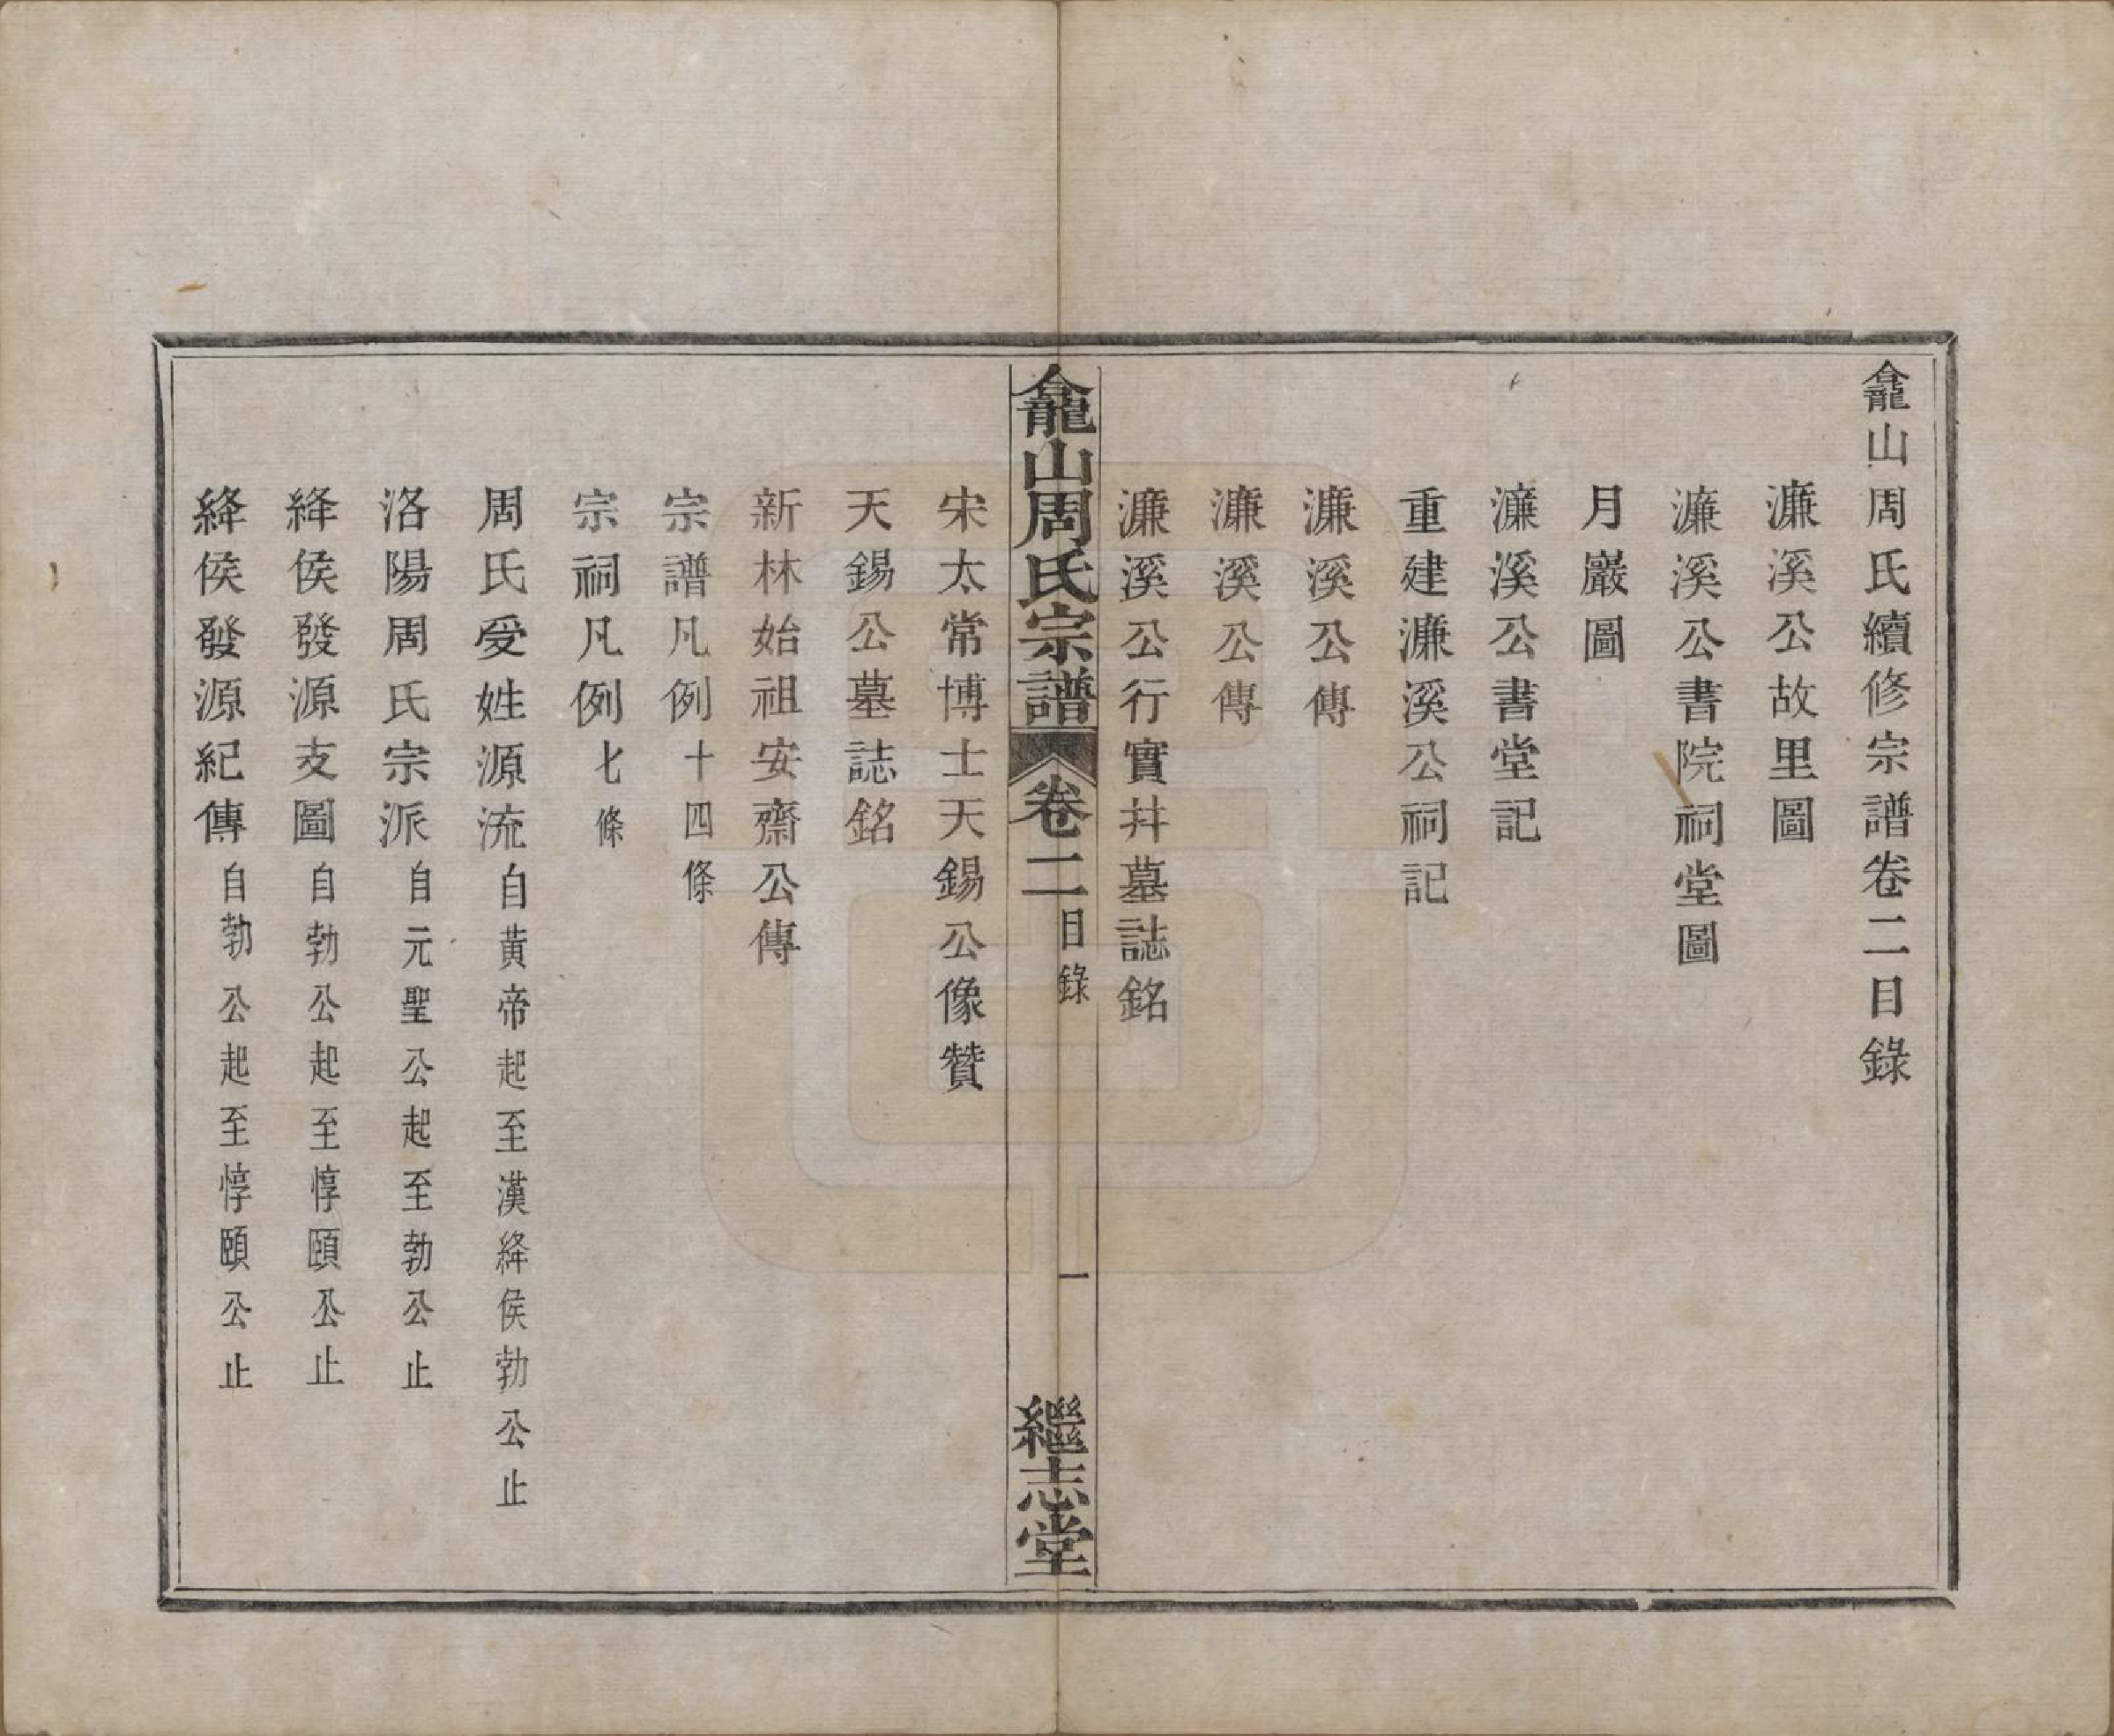 龕山周氏續修宗譜卷二目錄
濂溪公故里圖
濂溪公書院祠堂圖
月巖圖
濂溪公書堂記
重建濂溪公祠記
濂溪公傳
濂溪公傳
濂溪公行實并墓誌銘
龕山周氏宗譜 卷二 目錄 一 繼志堂
宋太常博士天錫公像贊
天錫公墓誌銘
新林始祖安齋公傳
宗譜凡例十四條
宗祠凡例七條
周氏受姓源流自黃帝起至漢絳侯勃公止
洛陽周氏宗派自元聖公起至勃公止
絳侯發源支圖自勃公起至惇頤公止
絳侯發源紀傳自勃公起至惇頤公止